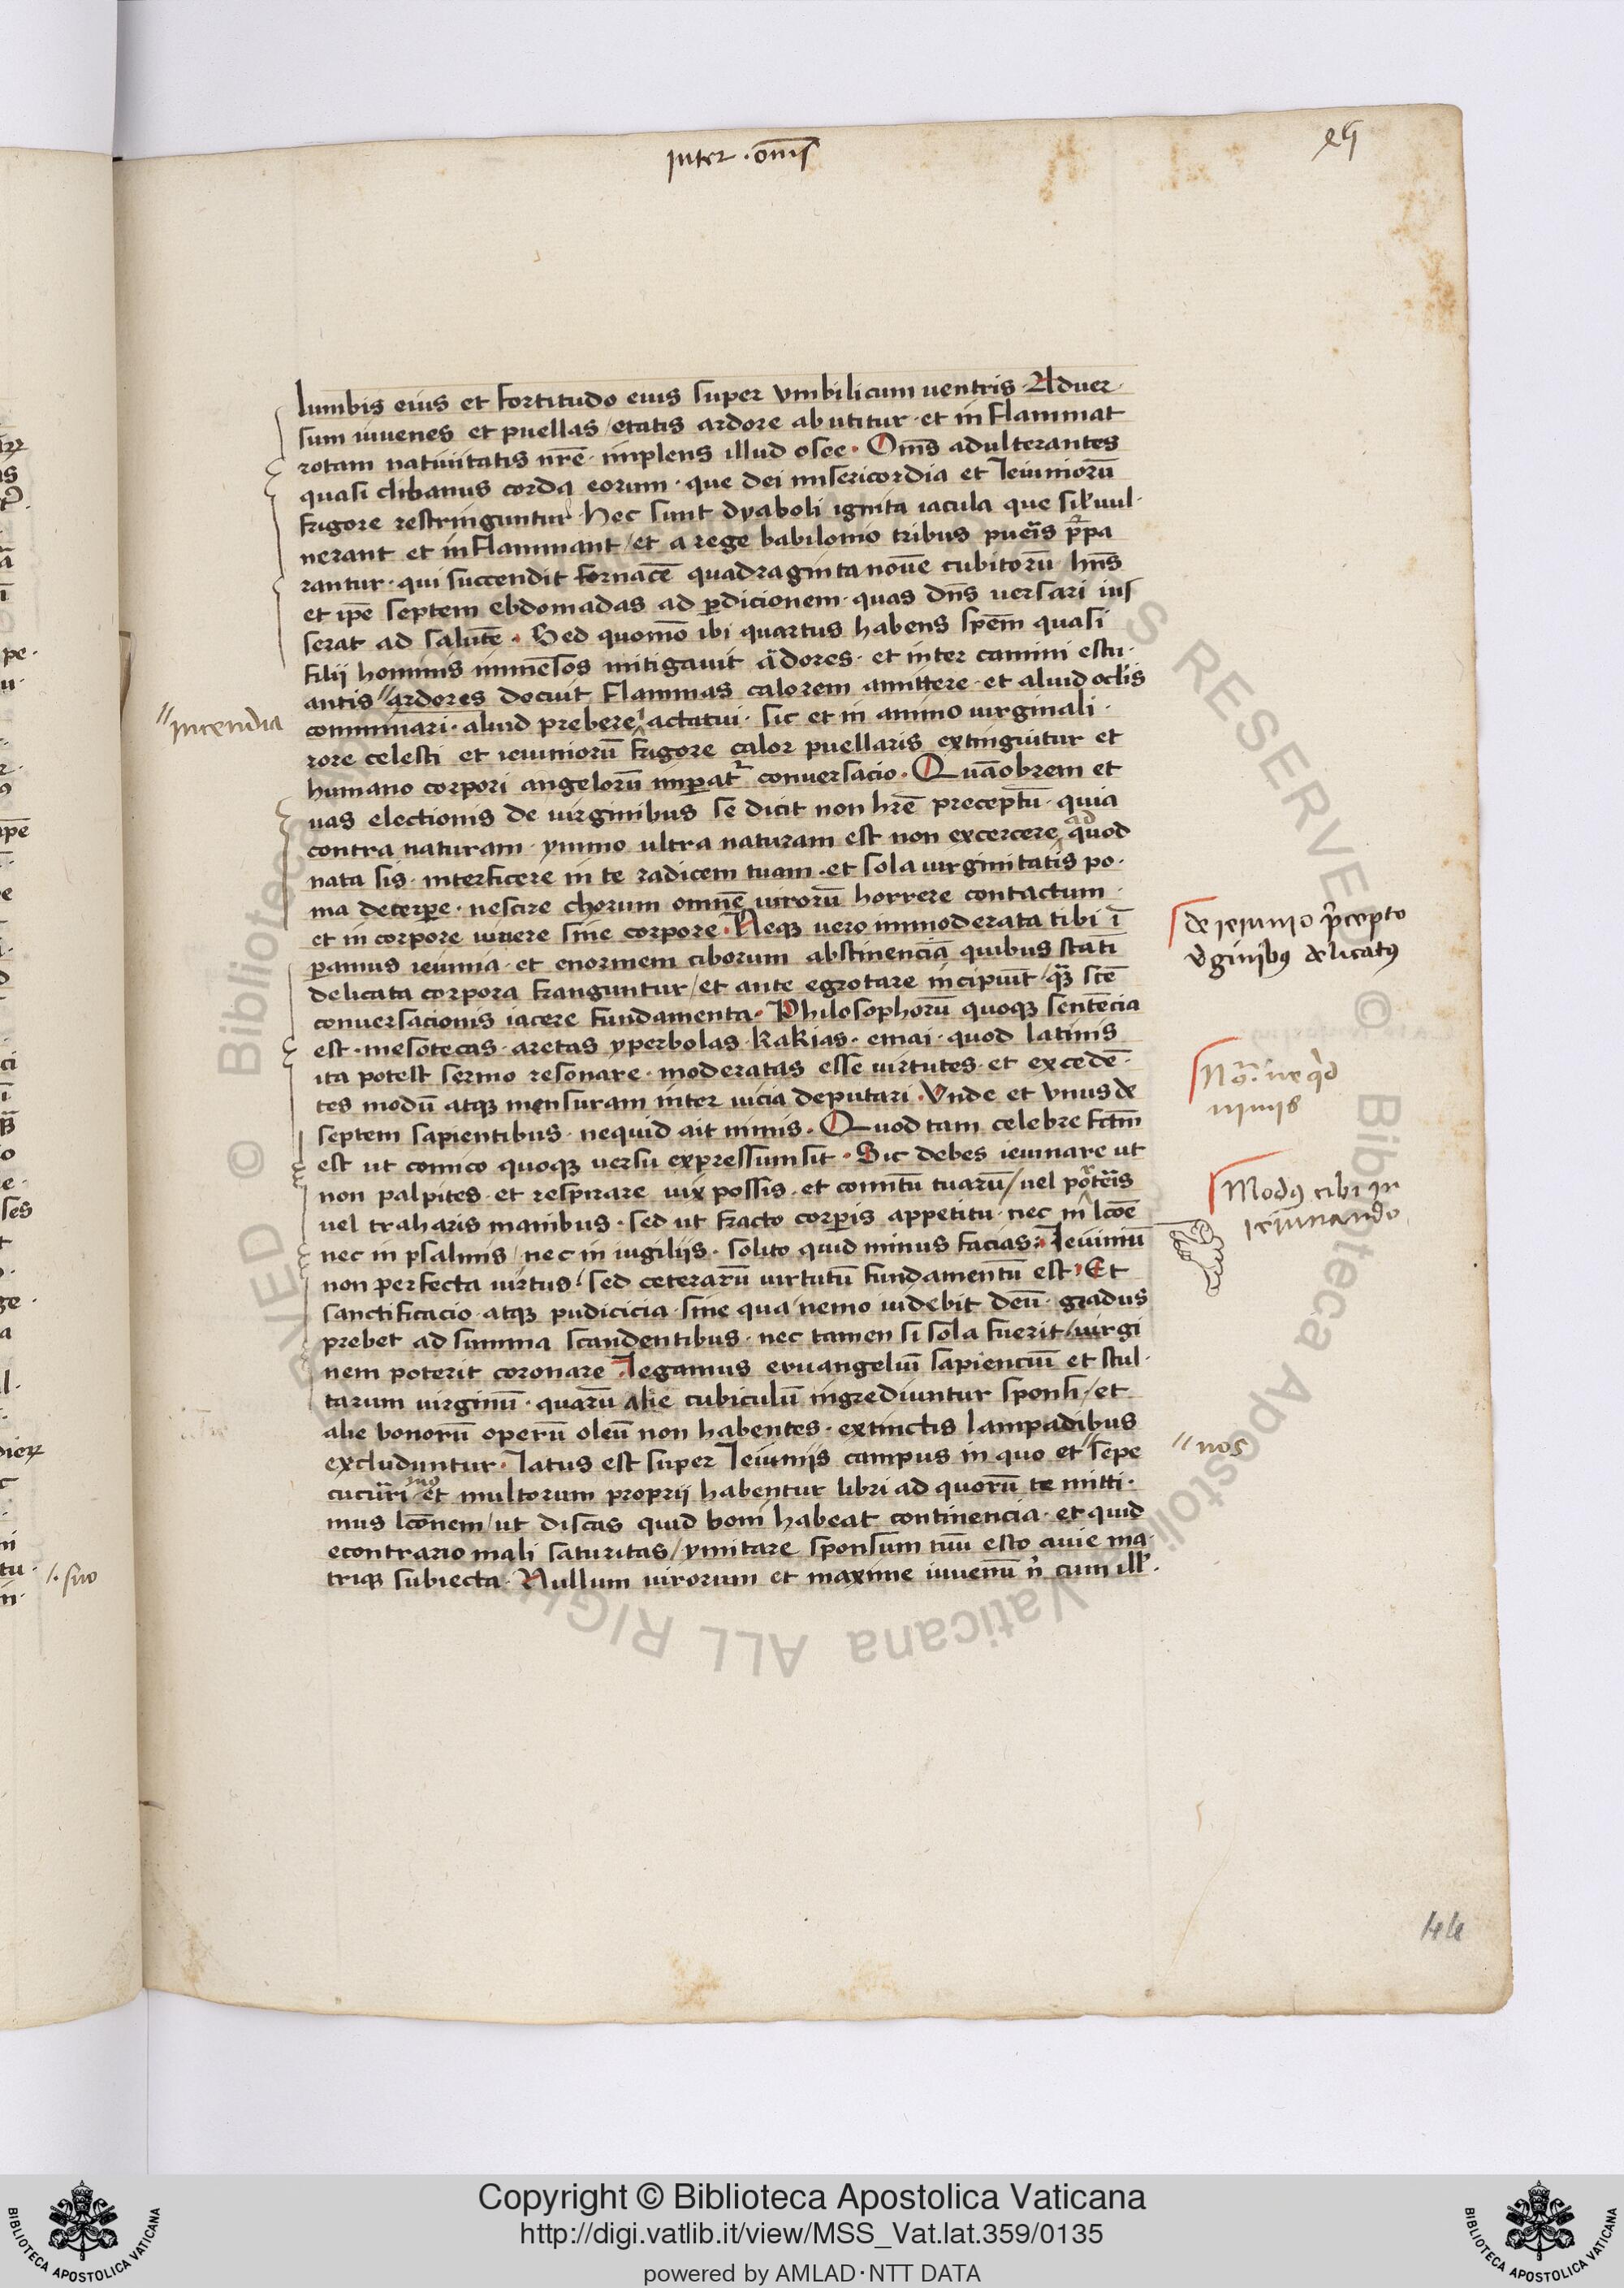 inter · om̅s
lumbis eius et fortitudo eius super vmbilicum uentris · Aduer·
sum iuuenes et puellas / etatis ardore abutitur · et inflammat
rotam natiuitatis nr̅e · implens illud osee · Om̅s adulterantes
quasi clibanus corda eorum · que dei misericordia et Ieiuniorū
frigore restringuntur · Hec sunt dyaboli ignita iacula que sil̉ uul·
nerant et inflammant / et a rege babilonio tribus
rantur · qui succendit fornacē quadraginta nouē cubitorū hn̅s
et ip̅e septem ebdomadas ad ꝑdicionem · quas dn̅s uersari ius
serat ad salutē · Sed quomō ibi quartus habens sp̅em quasi
filij hominis inmēsos mitigauit ardores · et inter camini estu·
antis // ardores docuit flammas calorem amittere · et aliud oclis
comminari · aliud prebere tactui · sic et in animo uirginali ·
rore celesti et ieiuniorū frigore calor puellaris extinguitur et
humano corpori angelorū impat̉ conuersacio · Quāobrem et
uas electionis de uirginibus se dicit non hr̅e preceptū · quia
contra naturam · ymmo ultra naturam est non excercere ad quod
nata sis · interficere in te radicem tuam · et sola uirginitatis po·
ma decerpe · nescire thorum omnē uirorū horrere contactum ·
et in corpore uiuere sine corpore · Neqꝫ uero immoderata tibi ī
ꝑamus ieiunia · et enormem ciborum abstinenciā quibus stati
delicata corpora franguntur / et ante egrotare incipiūt / qꝫ scē
conuersacionis iacere fundamenta · Philosophorū quoqꝫ sentēcia
est · mesotecas · aretas yperbolas · kakias · emai · quod latinis
ita potest sermo resonare · moderatas esse uirtutes · et excedē·
tes modū atqꝫ mensuram inter uicia deputari · Vnde et vnus de
septem sapientibus · nequid ait nimis · Quod tam celebre fctm̅
est ut comico quoqꝫ uersu expressum sit · Sic debes ieiunare ut
non palpites · et respirare uix possis · et comitū tuarū / uel
uel traharis manibus · sed ut fracto corꝑis appetitu · nec in lcōe
nec in psalmis / nec in iugilijs · solito quid minus facias · Ieiuniū
non perfecta uirtus / sed ceterarū uirtutū fundamentū est · Et
sanctificacio · atqꝫ pudicicia · sine qua nemo uidebit deū · gradus
prebet ad summa scandentibus · nec tamen si sola fuerit / uirgi
nem poterit coronare · Legamus euuangeliū sapienciū et stul·
tarum uirginū · quarū alie cubiculū ingrediuntur sponsi / et
alie bonorū operū oleū non habentes · extinctis lampadibus
excluduntur · Latus est super Ieiunijs campus in quo et // sepe
cucuri et multorum proprij habentur libri ad quorū te mitti·
mus lcōnem / ut discas quid boni habeat continencia · et quid
econtrario mali saturitas / ymitare sponsum tuū esto auie ma·
triqꝫ subiecta · Nullum uirorum et maxime iuuenū n̉ cum ill̉·
// incendia
de ieiunio p̉cepto
v̉ginibꝯ delicatꝯ
No. ne qd
nimis
Modꝯ cibi in
ieiunando
// nos
/. suo
44
Copyright © Biblioteca Apostolica Vaticana
http://digi.vatlib.it/view/MSS_Vat.lat.359/0135
powered by AMLAD·NTT DATA
BIBLIOTECA APOSTOLICA VATICANA
BIBLIOTECA APOSTOLICA VATICANA